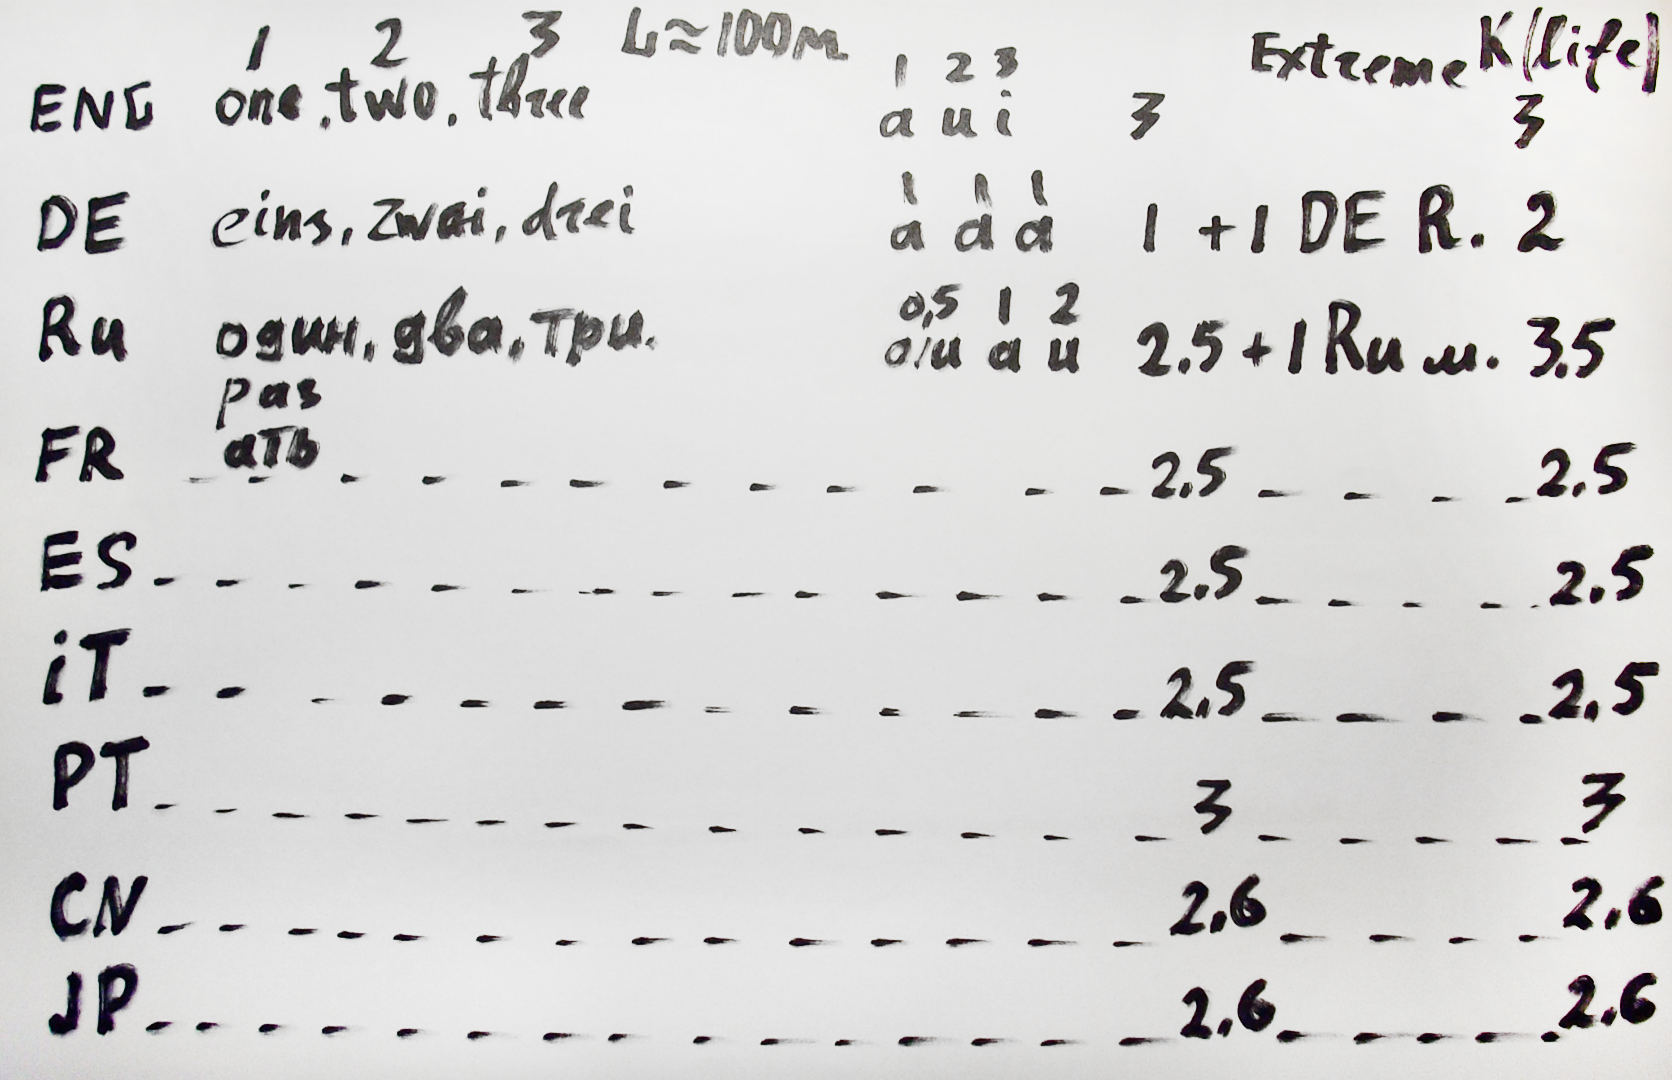 1 2 3 L≈100m 1 2 3 Extreme K(life)
ENG one, two, three a u i 3 3
1 1 1
DE eins, zwei, drei a a a 1 +1 DE R. 2
0,5 1 2
Ru один, два, три. о/и а и 2.5 +1 Ru м. 3.5
раз
FR ать 2.5 2.5
ES 2.5 2.5
iT 2.5 2.5
PT 3 3
CN 2.6 2.6
JP 2.6 2.6